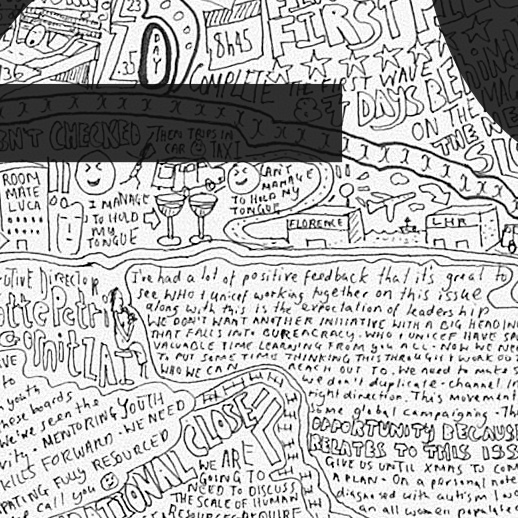 23
35
36
DAY
8h45
FIRST
FIRST
COMPLETE THE FIRST WAVE
87 DAYS BE
ON THE
THE W
SN'T CHECKED
THEN TRIPS IN
CAR TAXI
ROOM
MATE
LUCA
I MANAGE
TO HOLD
MY
TONGUE
CAN'T
MANAGE
TO HOLD MY
TONGUE
FLORENCE
LHR
CUTIVE DIRECTOR
I've had a lot of positive feedback that it's great to
see WHO & unicef working together on this issue
along with this is the expectation of leadership
WE DON'T WANT ANOTHER INITIATIVE WITH A BIG HEADIN
THAT FALLS INTO BUREACRACY. WHO & UNICEF HAVE SP
VALUABLE TIME LEARNING FROM you ALL. NOW WE N
TO PUT SOME TIME THINKING THIS THROUGH & WORK OUT
WHO WE CAN REACH OUT TO. We need to make s
we don't duplicate - channel in
right direction. This movement
some global campaigning - Th
OPPORTUNITY BECAUSE
RELATES TO THIS ISS
GIVE US UNTIL XMAS TO COM
A PLAN. On a personal note
diagnosed with autism I wo
an all women
to
youth
hose boards
We've seen the
vity. MENTORING YOUTH
KILLS FORWARD. WE NEED
PATING FULLY RESOURCED
call you
ATIONAL CLOSE
WE ARE
GOING TO
NEED TO DISCUSS
THE SCALE OF HUMAN
RESOURCES REQUIRE